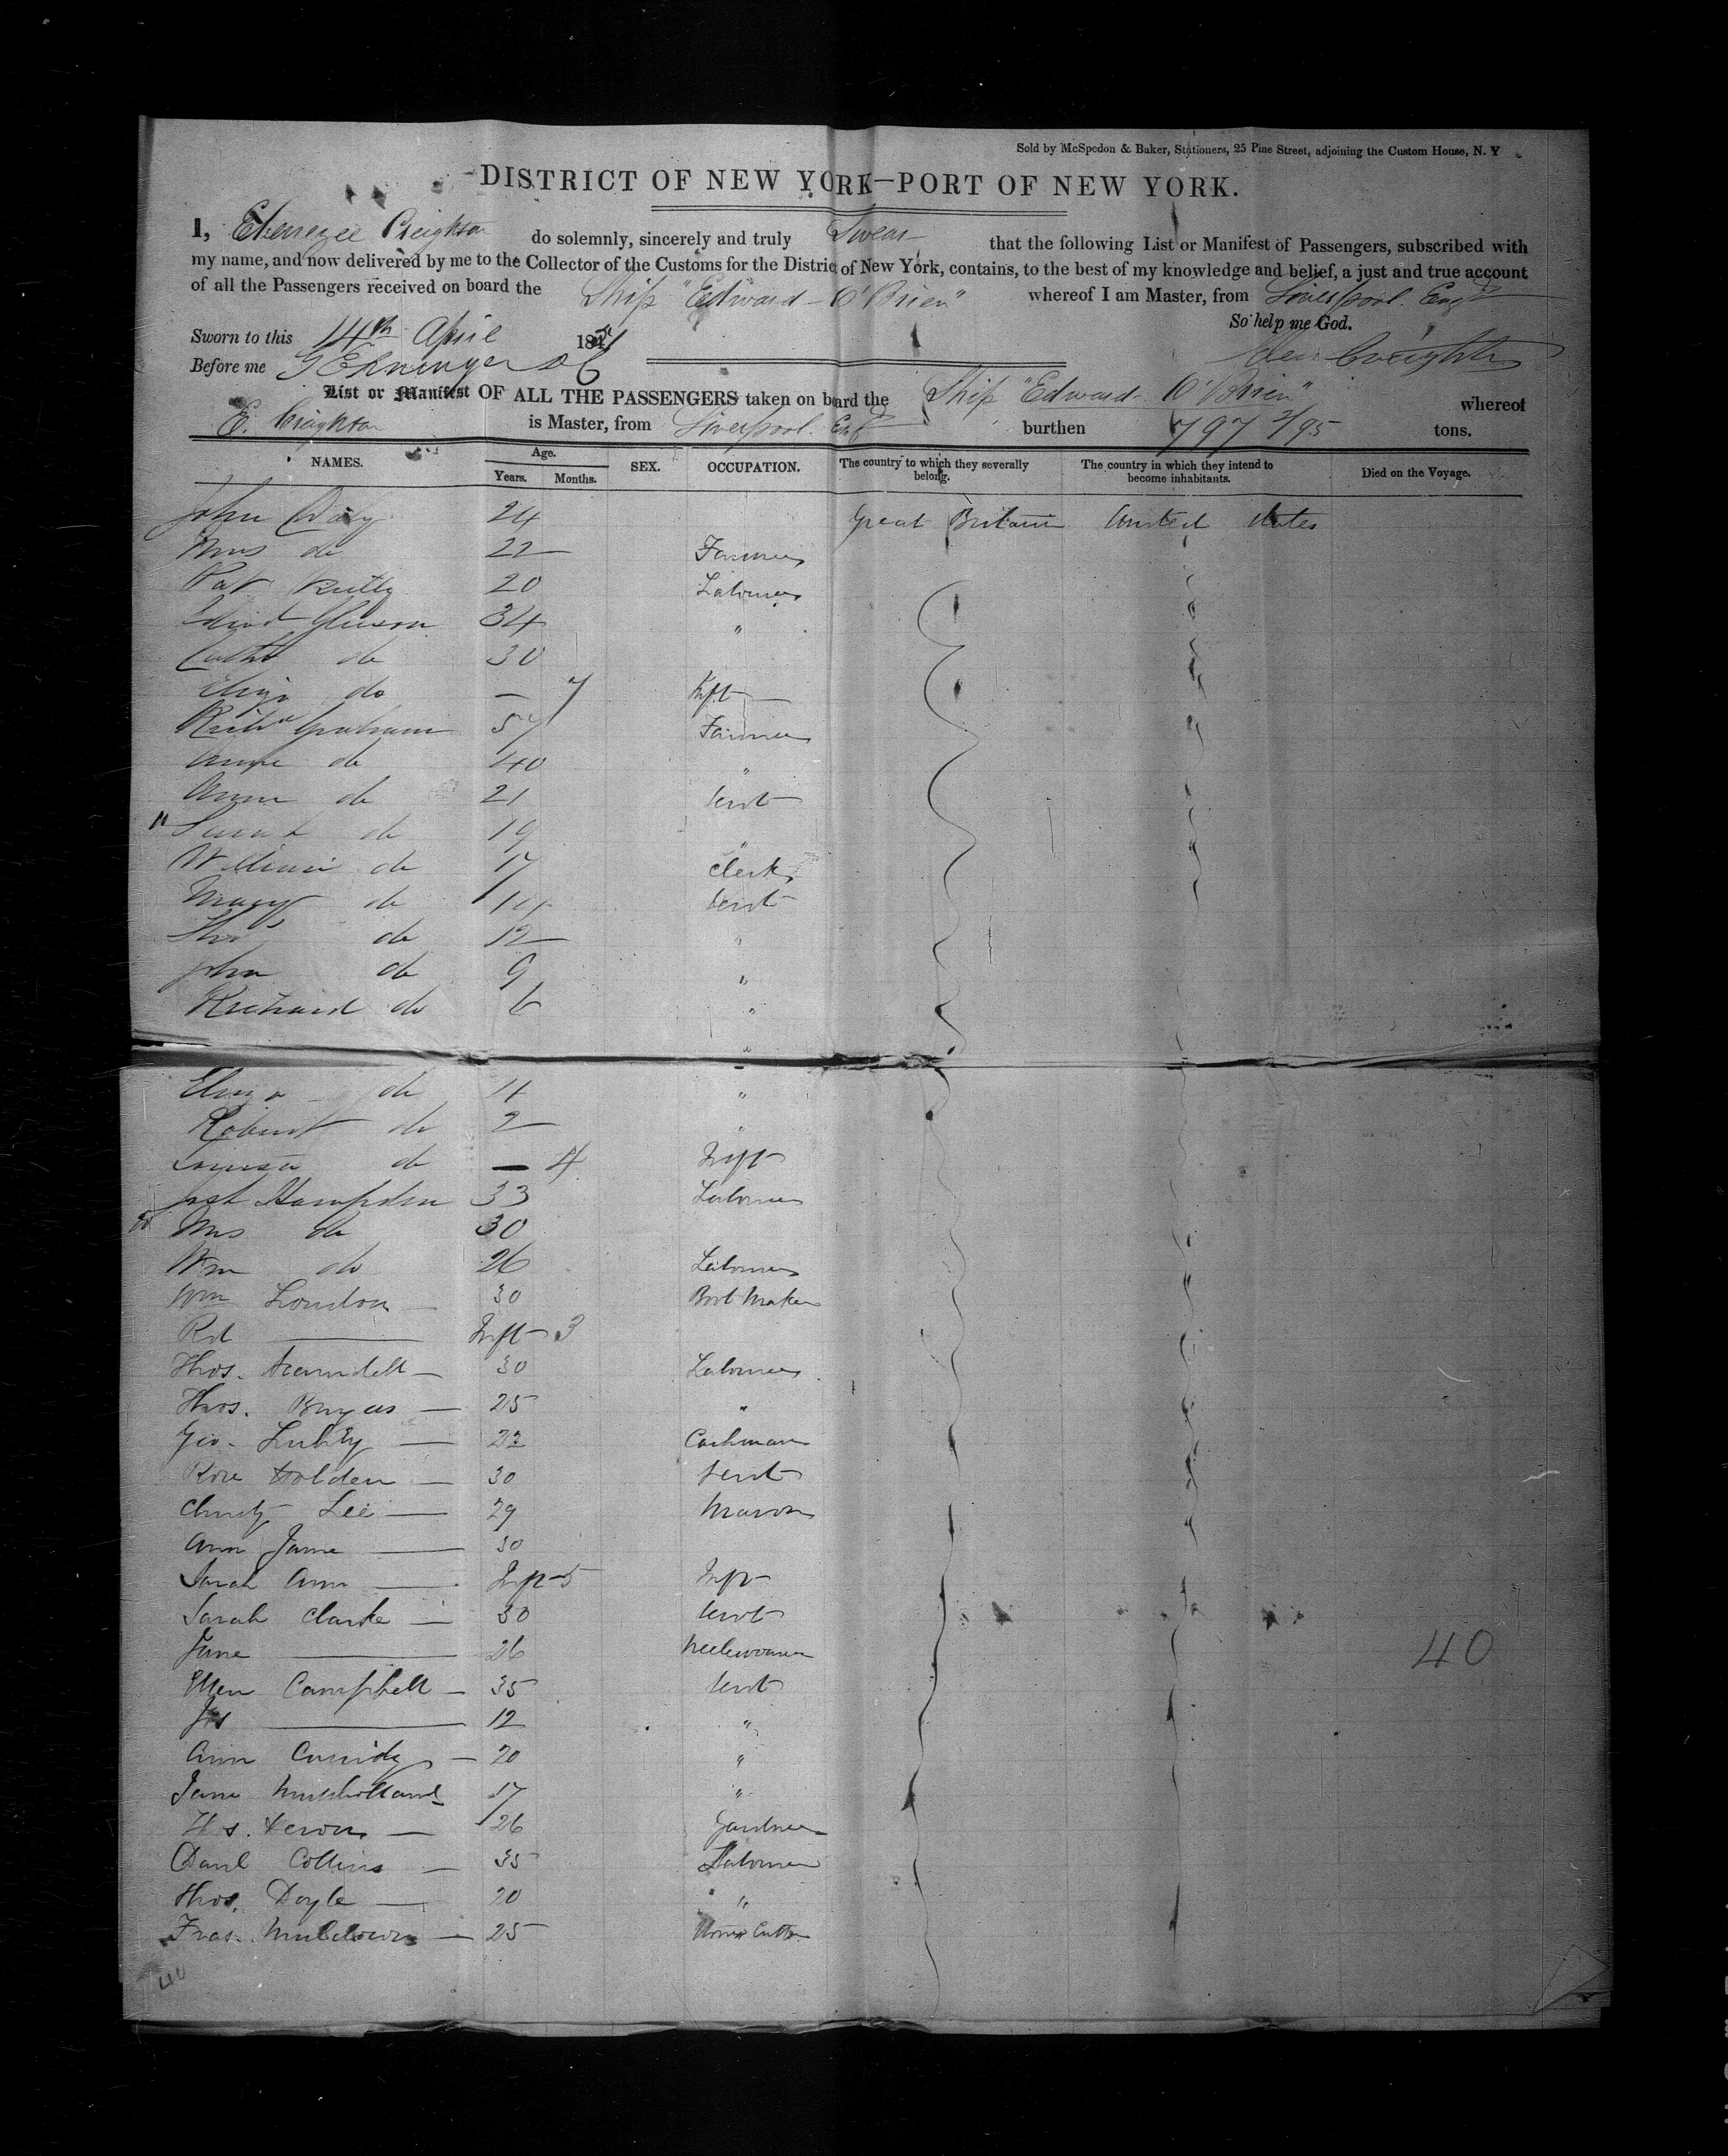 Sold by McSpedon & Baker, Stationers, 25 Pine Street, adjoining the Custom House, N. Y
DISTRICT OF NEW YORK—PORT OF NEW YORK.
I, Ebenezer Creighton do solemnly, sincerely and truly Swear that the following List or Manifest of Passengers, subscribed with
my name, and now delivered by me to the Collector of the Customs for the District of New York, contains, to the best of my knowledge and belief, a just and true account
of all the Passengers received on board the Ship "Edward O'Brien" whereof I am Master, from Liverpool. Engd
So help me God.
Sworn to this 14th April 1851
Before me Creighton
List or Manifest OF ALL THE PASSENGERS taken on board the Ship "Edward O'Brien" whereof
E. Creighton is Master, from Liverpool. Engd burthen 797 2/95 tons.
NAMES. Age. Years. Months. SEX. OCCUPATION. The country to which they severally belong. The country in which they intend to become inhabitants. Died on the Voyage.
John Day 24 Great Britain United States
Mrs do 22 Farmer
Pat 20 Labourer
Gleeson 34 "
Cath do 30
Eliza do — 7 Inft
Richd Graham 57 Farmer
Anne do 40 "
Ann do 21 Servt
Sarah do 19 "
William do 17 Clerk
Mary do 14 Servt
Thos do 12 "
John do 9 "
Richard do 6 "
Eliza do 4 "
Robert do 2 "
Louisa do — 4 Inft
Hampden 33 Labourer
Mrs do 30
Wm do 26 Labourer
Wm London 30 Boot Maker
Rd Inft 3
Thos. 30 Labourer
Thos. 25 "
Geo. 22
Rose Holden 30 Servt
Christy Lee 29 Mason
Ann Jane 30
Sarah Ann Inft 5 Inft
Sarah Clarke 30 Servt
Jane 26
Ellen Campbell 35 Servt
Jas 12 "
Ann 20 "
Jane Mulholland 17 "
26 Gardner
Danl Collins 35 Labourer
Thos. Doyle 20 "
Fras. 25 Cutter
40
40